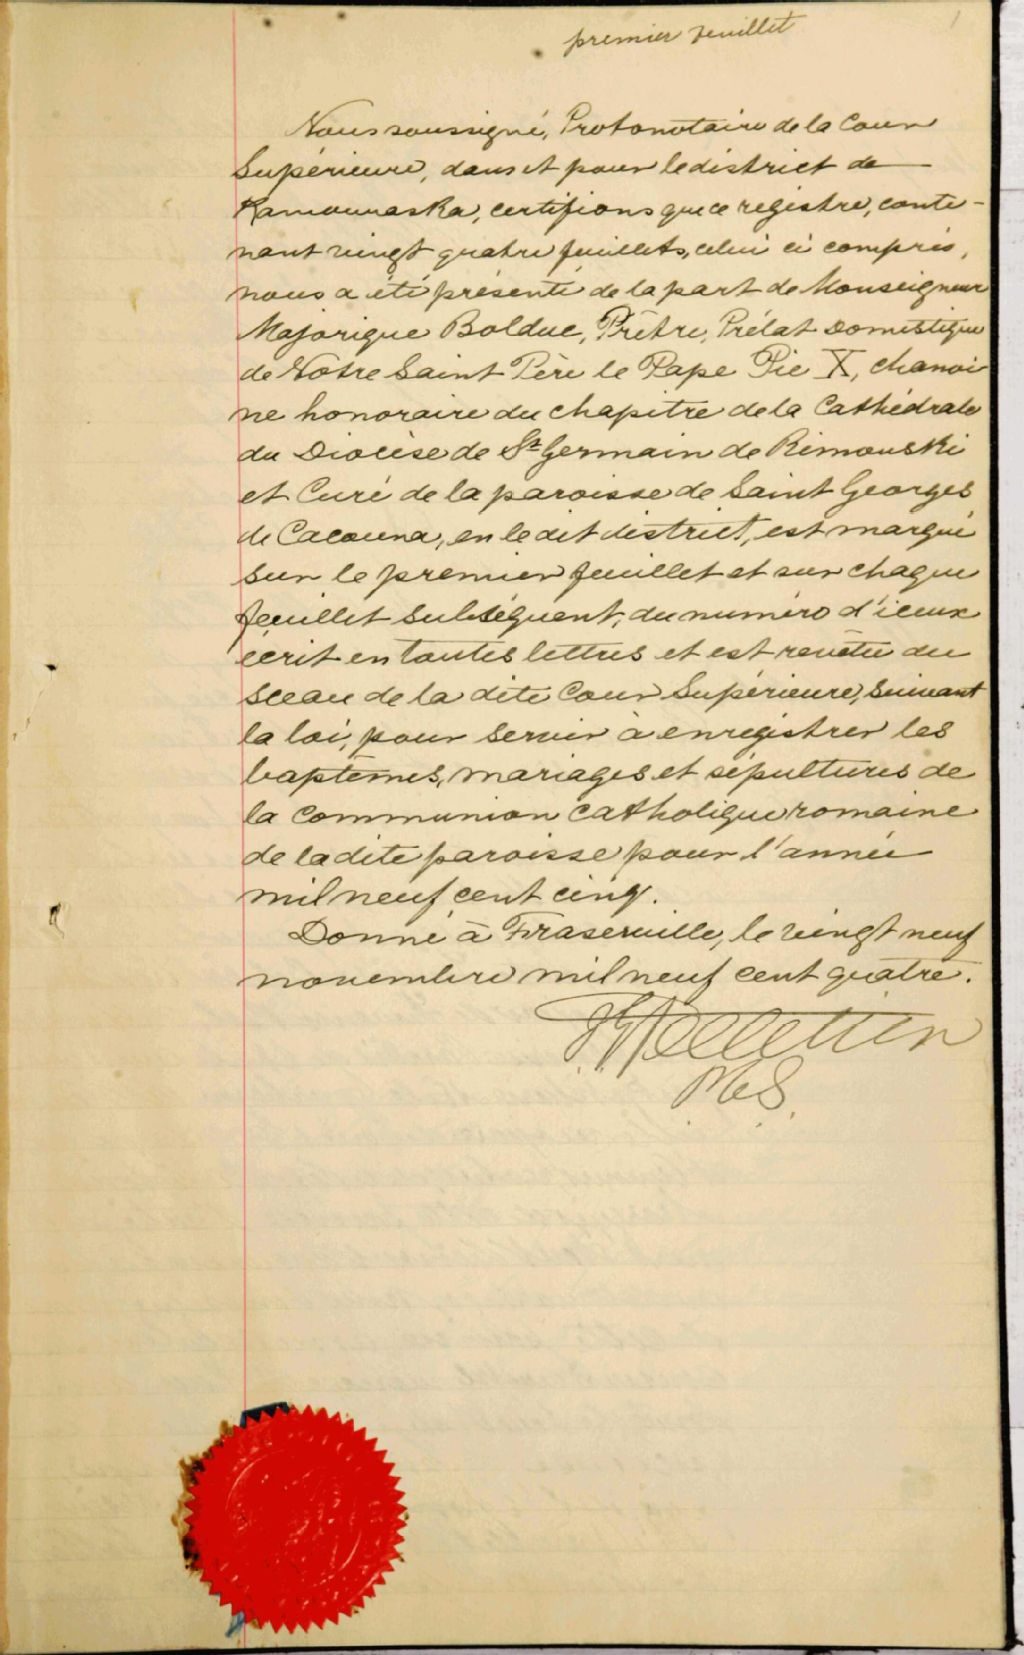 premier feuillet
1
Nous soussigné, Protonotaire de la Cour
Supérieure, dans et pour le district de
Kamouraska, certifions que ce registre, conte-
nant vingt quatre feuillets, celui ci compris,
nous a été présenté de la part de Monseigneur
Majorique Bolduc, Prêtre, Prélat Domestique
de Notre Saint Père le Pape Pie X, chanoi
ne honoraire du chapitre de la Cathédrale
du Diocèse de St Germain de Rimouski
et Curé de la paroisse de Saint Georges
de Cacouna, en le dit district, est marqué
sur le premier feuillet et sur chaque
feuillet subséquent, du numéro d'iceux
écrit en toutes lettres et est revêtu du
sceau de la dite Cour Supérieure, suivant
la loi, pour servir à enregistrer les
baptêmes, mariages et sépultures de
la Communion Catholique romaine
de la dite paroisse pour l'année
mil neuf cent cinq.
Donné à Fraserville, le vingt neuf
novembre mil neuf cent quatre.
Pelletier
P.C.S.